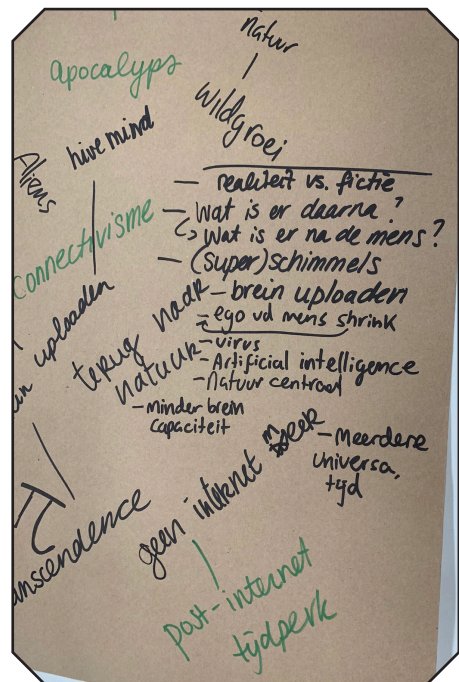 natuur
apocalyps
wildgroei
hive mind
Aliens
realiteit vs. fictie
connectivisme
- wat is er daarna?
wat is er na de mens?
- (super)schimmels
uploaden
- brein uploaden
- ego vd mens shrink
terug naar
natuur
- virus
- Artificial intelligence
- Natuur centraal
- minder brein
capaciteit
geen internet meer
- Meerdere
universa,
tijd
π
anscendence
post-internet
tijdperk